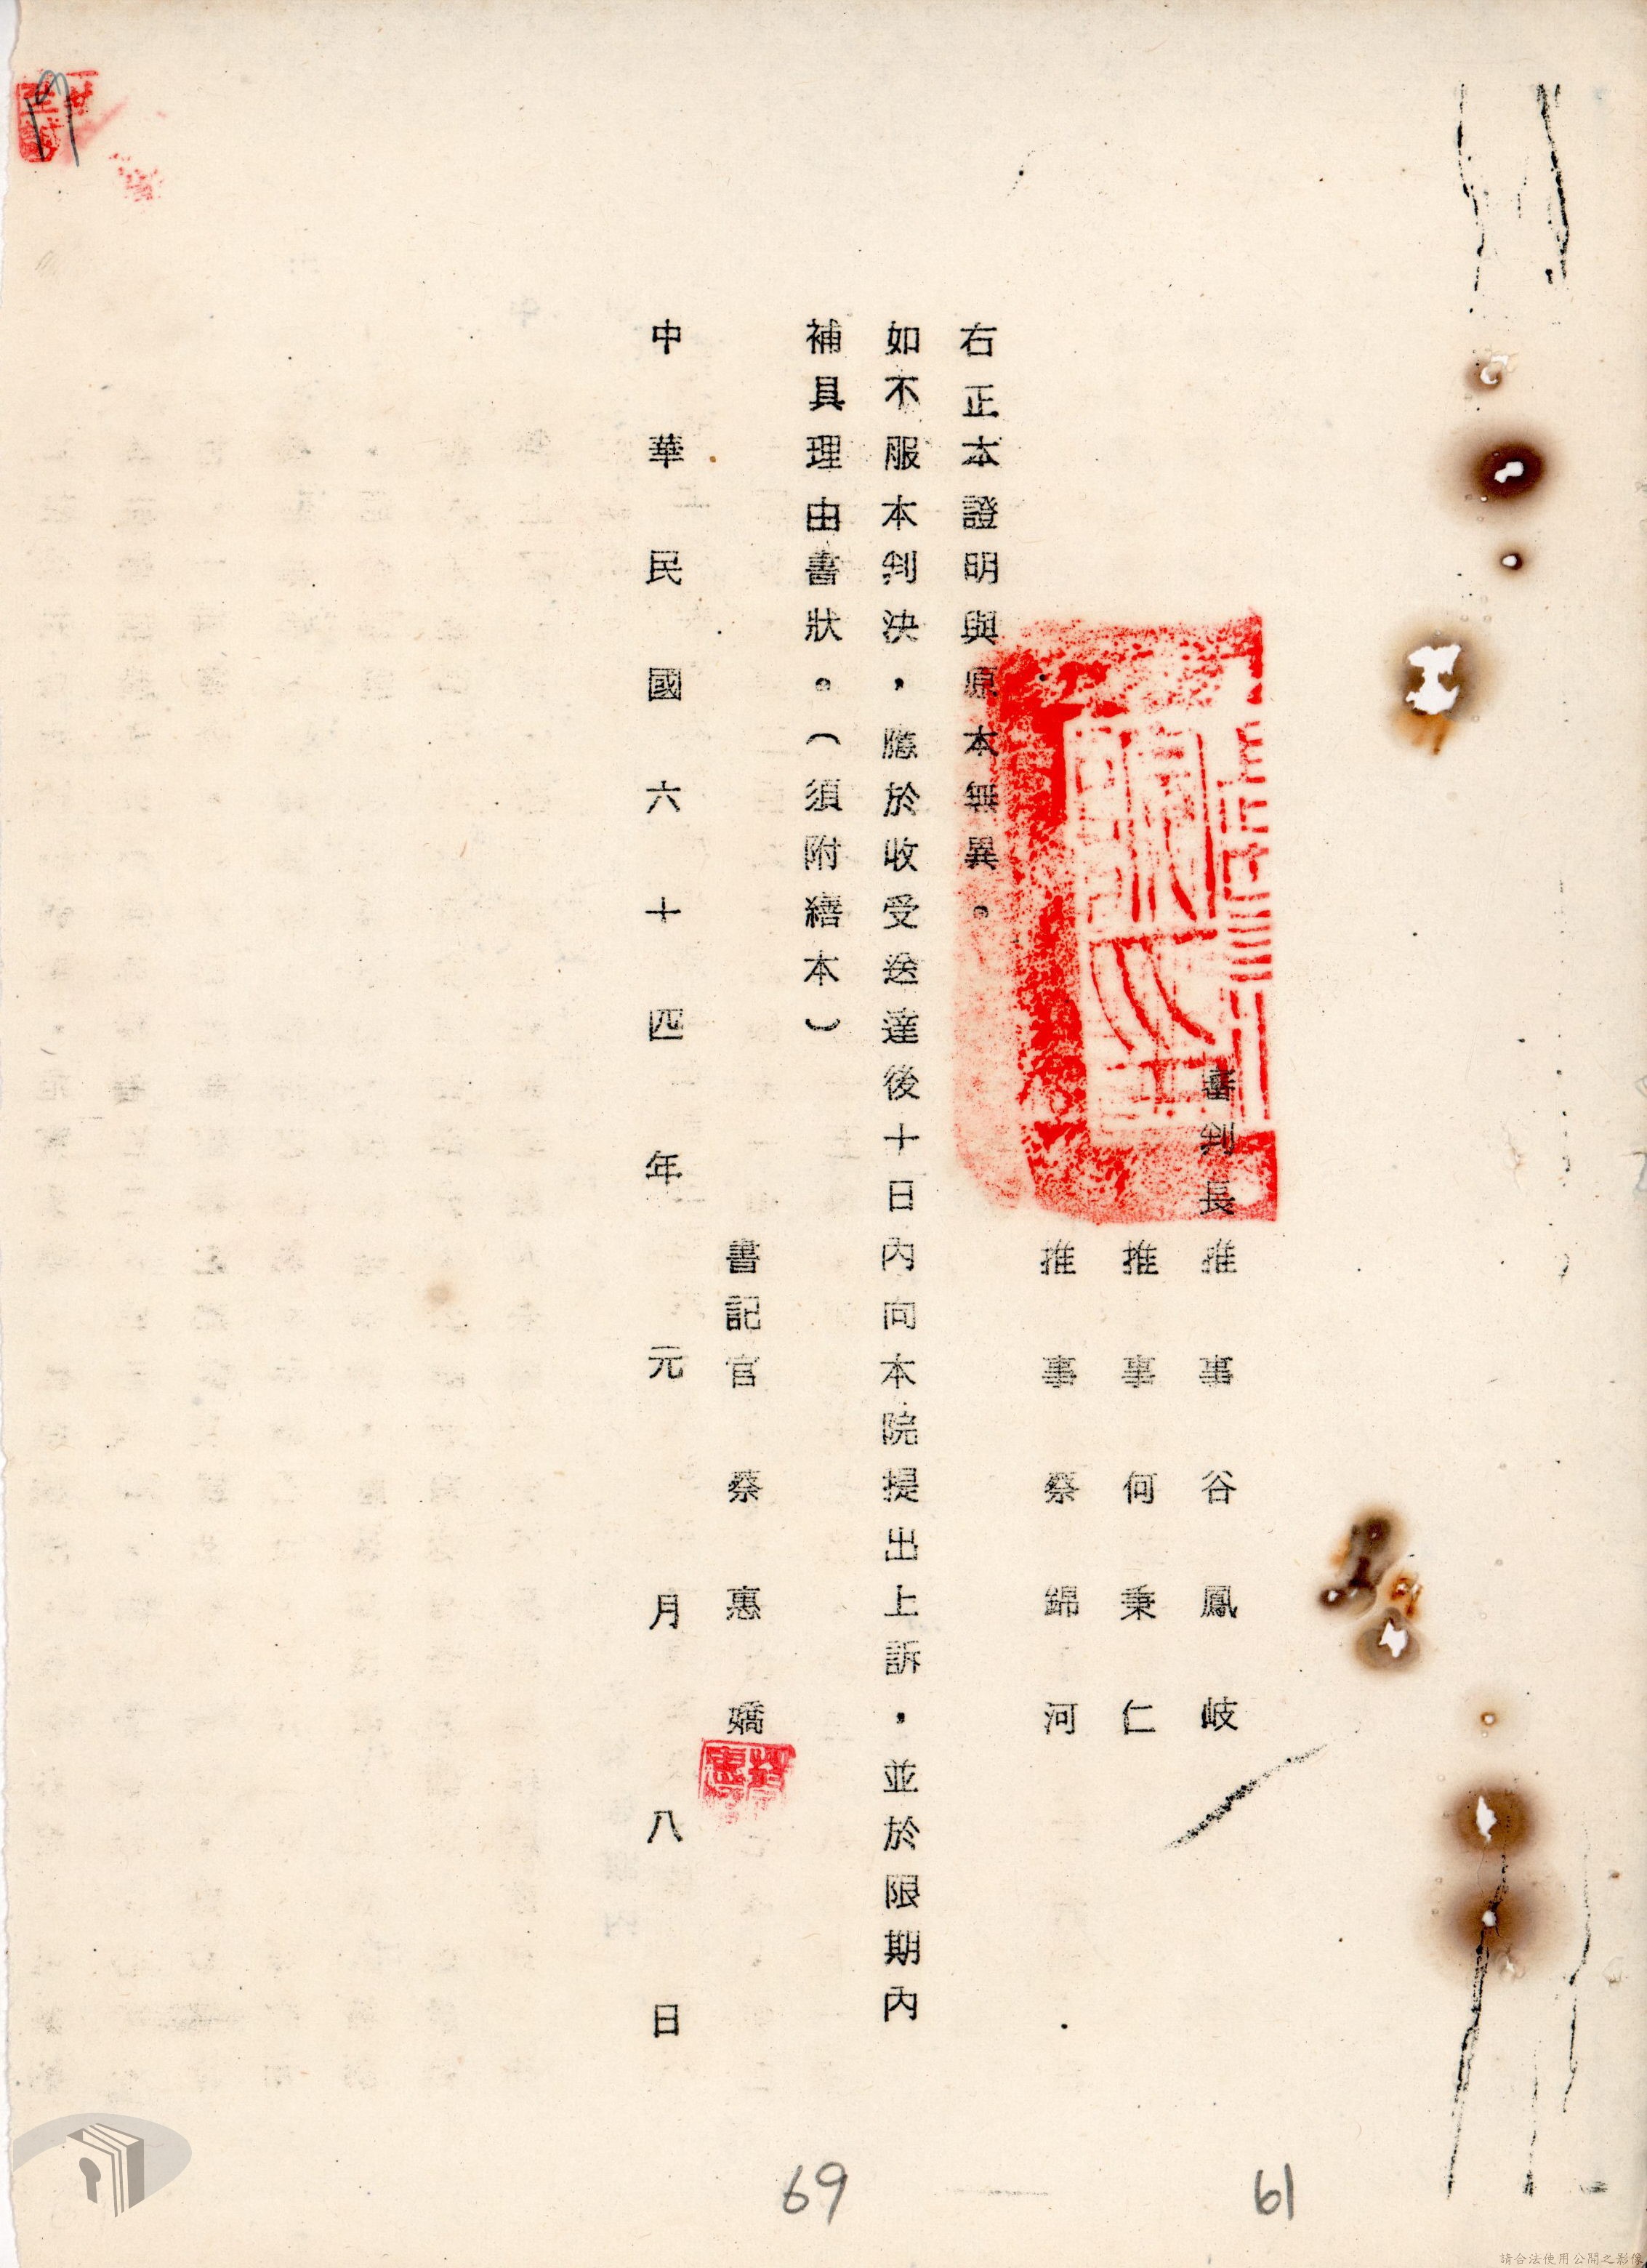 審判長推事谷鳳岐
推事何秉仁
推事蔡錦河
右正本證明與原本無異。
如不服本判決，應於收受送達後十日內向本院提出上訴，並於限期內
補具理由書狀。（須附繕本）
書記官蔡惠嬌
中華民國六十四年元月八日
69
61
請合法使用公開之影像